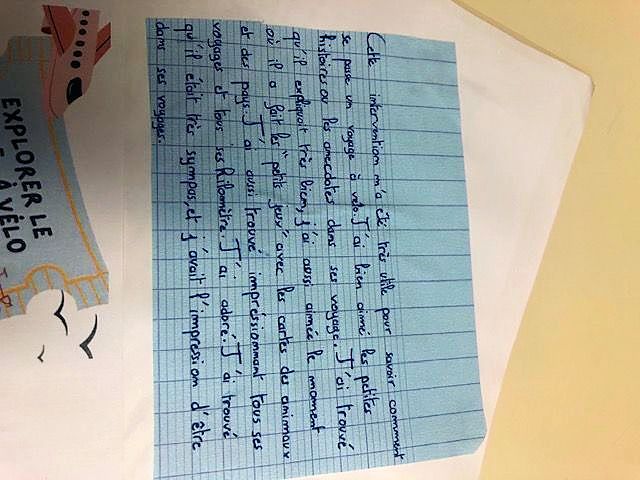 Cette intervention m'a été très utile pour savoir comment
se passe un voyage à vélo. J'ai bien aimé les petites
histoires ou les anecdotes dans ses voyage. J'ai trouvé
qu'il expliquait très bien, j'ai aussi aimée le moment
où il a fait les "petits jeux" avec les cartes des animaux
et des pays. J'ai aussi trouvé impréssionnant tous ses
voyages et tous ses kilomètre. J'ai adoré. J'ai trouvé
qu'il était très sympas, et j'avait l'impression d'être
dans ses voyages.
EXPLORER LE
À VÉLO